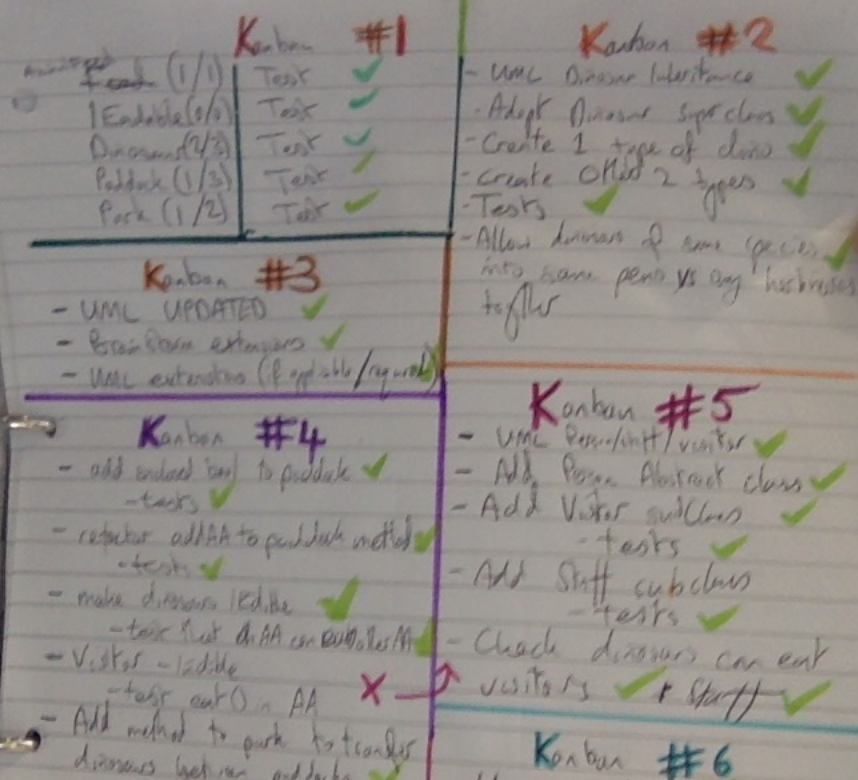 Kanban #1
(1/1) Test
IEadable Test
Test
Paddock (1/3) Test
Park (1/2) Test
Kanban #2
- UML Dinosaur Inheritance
- Adapt Dinosaur superclass
- Create 1 type of dino
- Create other 2 types
- Tests
- Allow dinosaurs of same species
into same pens vs any
Kanban #3
- UML UPDATED
- Brainstorm extensions
- UML extensions (if applicable/required)
Kanban #4
- add to paddock
- tests
- refactor addAA to paddock method
- tests
- make dinosaurs IEdible
- test that
- Visitor - Iedible
- test eat() in AA
X
- Add method to park to transfer
dinosaurs between paddocks
Kanban #5
- UML Person/staff/visitor
- Add Person Abstract class
- Add Visitor subclass
- tests
- Add Staff subclass
- tests
- Check dinosaurs can eat
visitors + Staff
Kanban #6